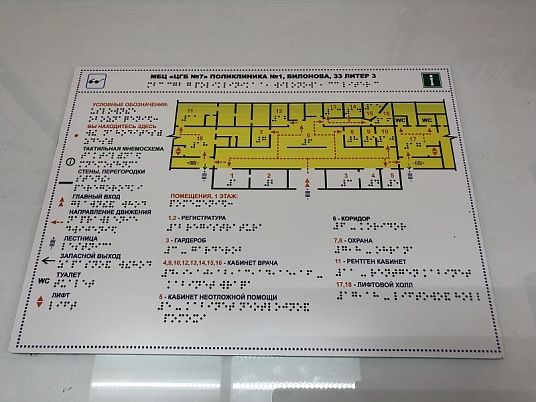 МБЦ «ЦГБ №7» ПОЛИКЛИНИКА №1, ВИЛОНОВА, 33 ЛИТЕР З
i
УСЛОВНЫЕ ОБОЗНАЧЕНИЯ:
ВЫ НАХОДИТЕСЬ ЗДЕСЬ
ТАКТИЛЬНАЯ МНЕМОСХЕМА
СТЕНЫ, ПЕРЕГОРОДКИ
ГЛАВНЫЙ ВХОД
НАПРАВЛЕНИЕ ДВИЖЕНИЯ
ЛЕСТНИЦА
ЗАПАСНОЙ ВЫХОД
ТУАЛЕТ
WC
ЛИФТ
11
12
13
14
15
16
WC
WC
18
7
6
8
9
10
17
1
2
3
4
5
ПОМЕЩЕНИЯ, 1 ЭТАЖ:
1,2 - РЕГИСТРАТУРА
3 - ГАРДЕРОБ
4,9,10,12,13,14,15,16 - КАБИНЕТ ВРАЧА
5 - КАБИНЕТ НЕОТЛОЖНОЙ ПОМОЩИ
6 - КОРИДОР
7,8 - ОХРАНА
11 - РЕНТГЕН КАБИНЕТ
17,18 - ЛИФТОВОЙ ХОЛЛ